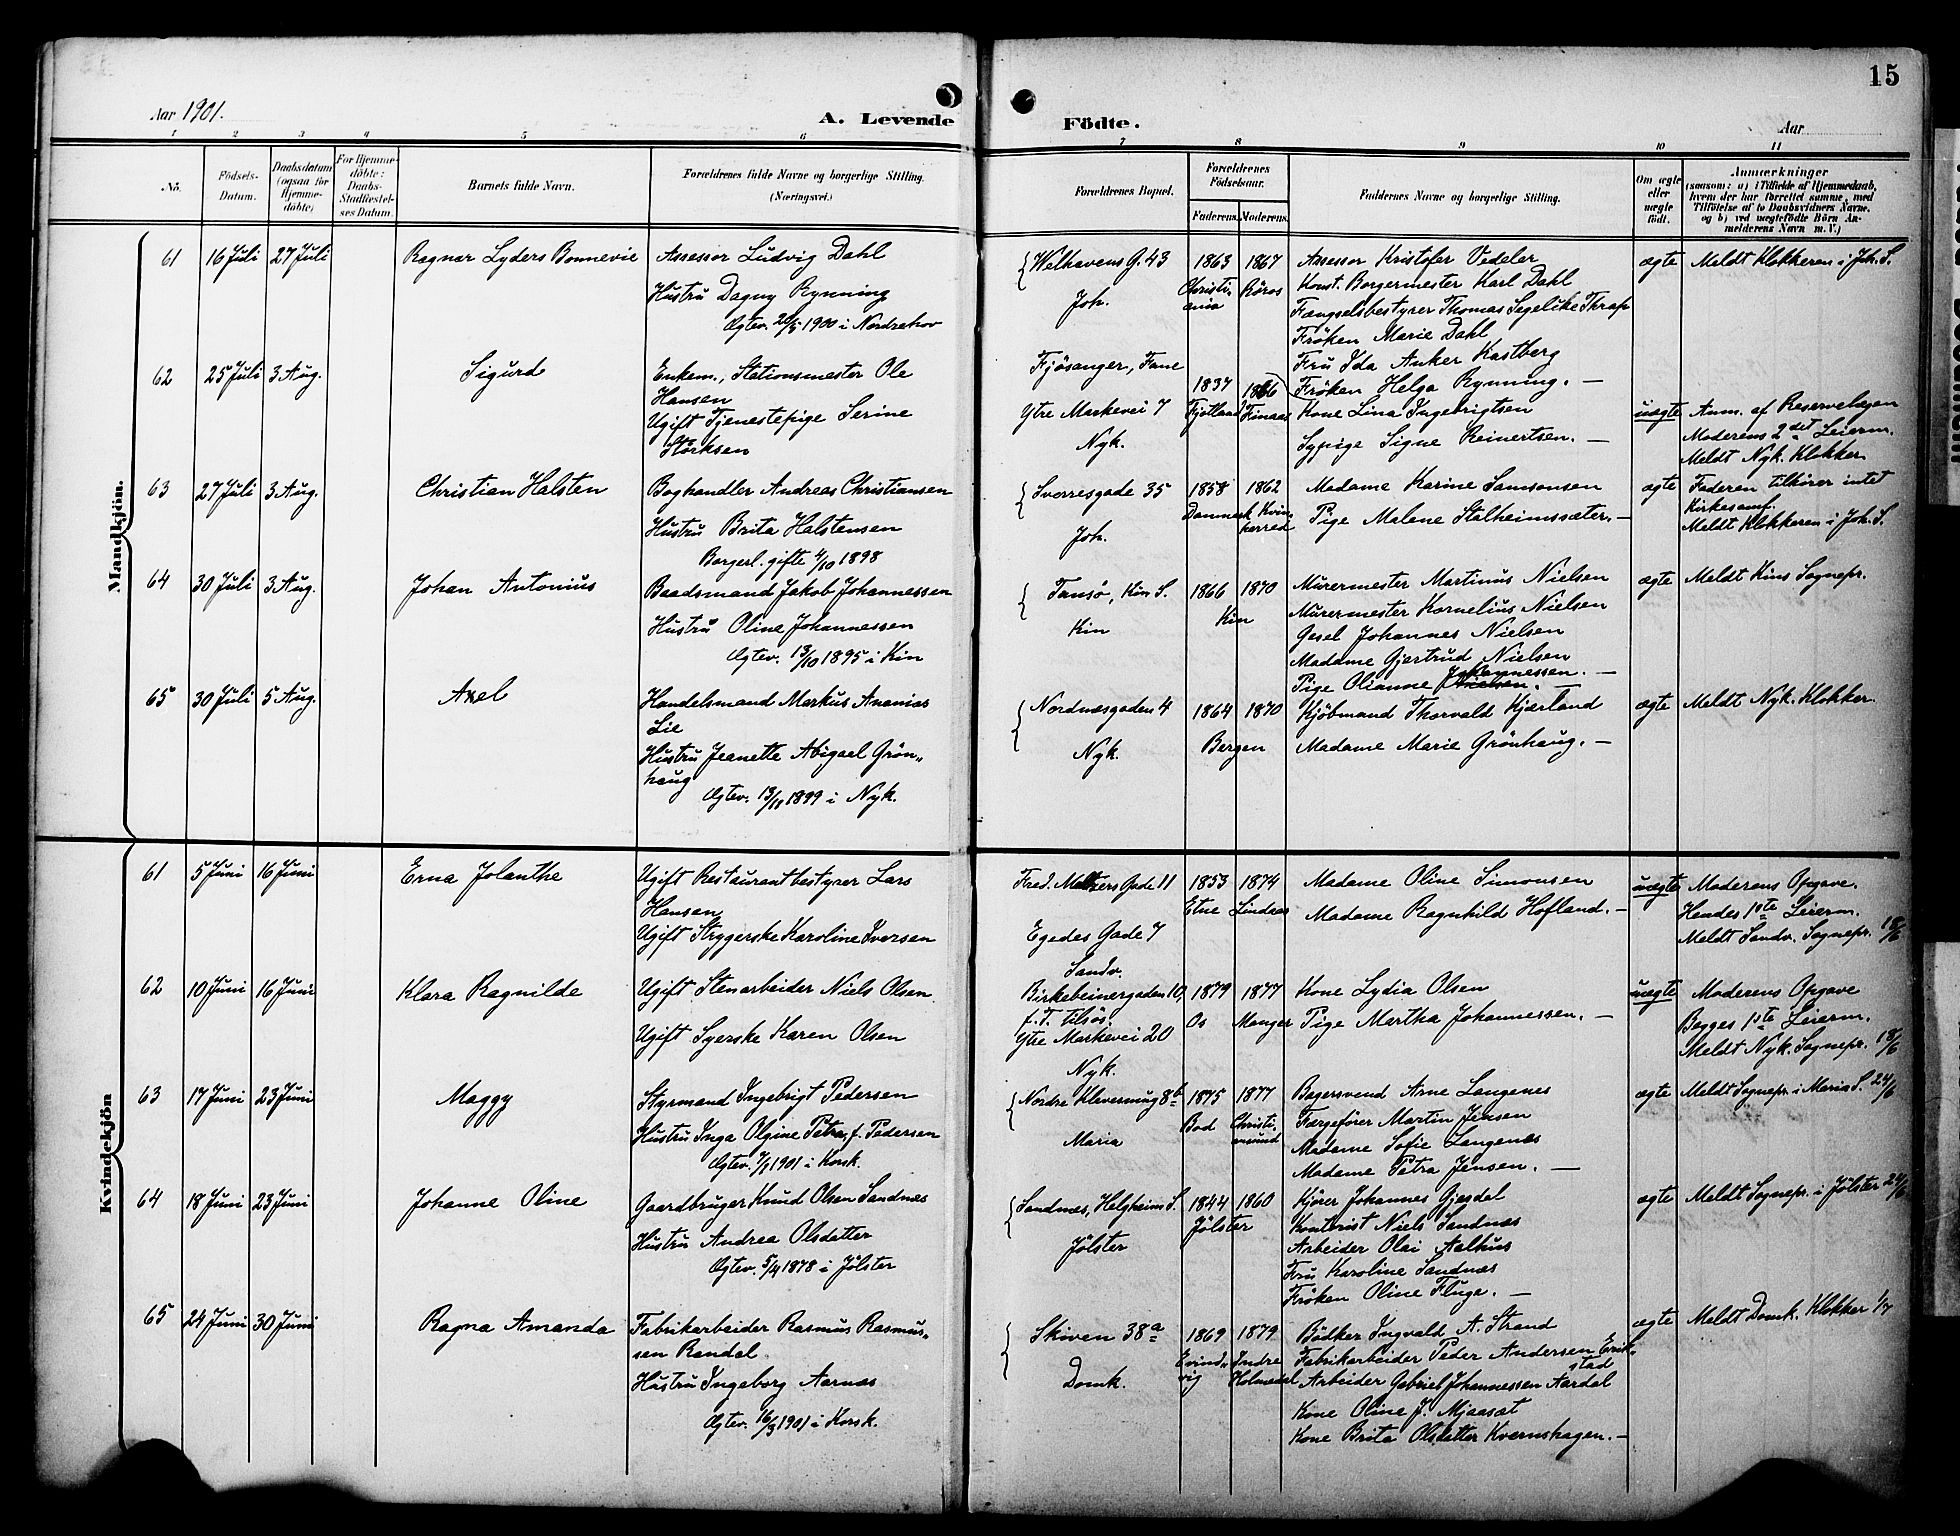 15
Aar 1901.
A. Levende Födte.
Aar
1 2 3 4 5 6 7 8 9 10 11
No.
Födsels-Datum.
Daabsdatum (ogsaa for Hjemmedöbte)
For Hjemmedöbte: Daabs-Stadfæstelses Datum.
Barnets fulde Navn.
Forældrenes fulde Navne og borgerlige Stilling. (Næringsvei.)
Forældrenes Bopæl.
Forældrenes Födselsaar.
Faderens. Moderens.
Faddernes Navne og borgerlige Stilling.
Om ægte eller uægte født.
Anmærkninger (saasom: a) i Tilfælde af Hjemmedaab, hvem der har forrettet samme, med Tilföielse af to Daabsvidners Navne, og b) ved uægtefödte Börn Anmelderens Navn m. V.)
Mandkjön.
61 16 Juli 27 Juli Ragnar Lyders Bonnevie
Assessor Ludvig Dahl
Hustru Dagny Rynning
Ægtev. 20/5 1900 i Nordrehov
Welhavens G. 43
Joh.
1863 Christiania
1867 Röros
Assessor Kristofer Vedeler
Konst. Borgermester Karl Dahl
Fængselsbestyrer Thomas Segelike Thrap
Frøken Marie Dahl
Fru Ida Anker Kastberg
Frøken Helga Rynning. —
ægte
Meldt Klokkeren i Joh. S.
62 25 Juli 3 Aug. Sigurd
Enkem., Stationsmester Ole
Hansen
Ugift Tjenestepige Serine
Störksen
Fjösanger, Fane
Ytre Markevei 7
Nyk.
1837 Fjotland
1866 Finaas
Kone Lina Ingebrigtsen
Sypige Signe Reinertsen. —
uægte
Anm. af Reservelægen
Moderens 2det Leierm.
Meldt Nyk. Klokker
63 27 Juli 3 Aug. Christian Halsten
Boghandler Andreas Christiansen
Hustru Brita Halstensen
Borgerl. gifte 4/10 1898
Sverresgade 35
Joh.
1858 Danmark
1862 Kvinherred
Madame Karine Samsonsen
Pige Malene Stalheimssæter. —
ægte
Faderen tilhører intet
Kirkesamf.
Meldt Klokkeren i Joh. S.
64 30 Juli 3 Aug. Johan Antonius
Baadsmand Jakob Johannessen
Hustru Oline Johannessen
Ægtev. 13/10 1895 i Kin
Tansø, Kin S.
Kin
1866 1870
Kin
Murermester Martinus Nielsen
Murermester Kornelius Nielsen
Gesel Johannes Nielsen
Madame Gjertrud Nielsen
Pige Olianne Nielsen. Johannessen. —
ægte
Meldt Kins Sognepr.
65 30 Juli 5 Aug. Axel
Handelsmand Markus Ananias
Lie
Hustru Jeanette Abigael Grön-
haug
Ægtev. 13/11 1899 i Nyk.
Nordnæsgaden 4
Nyk.
1864 1870
Bergen
Kjöbmand Thorvald Kjærland
Madame Marie Grönhaug. —
ægte
Meldt Nyk. Klokker
Kvindekjön
61 5 Juni 16 Juni Erna Jolanthe
Ugift Restaurantbestyrer Lars
Hansen
Ugift Strygerske Karoline Iversen
Fred. Meltzers Gade 11
Egedes Gade 7
Sandv.
1853 Etne
1874 Lindaas
Madame Oline Simonsen
Madame Ragnhild Hofland. —
uægte
Moderens Opgave.
Hendes 1ste Leierm.
Meldt Sandv. Sognepr. 18/6
62 10 Juni 16 Juni Klara Ragnilde
Ugift Stenarbeider Niels Olsen
Ugift Syerske Karen Olsen
Birkebeinergaden 10,
f. T. tilsøs
Ytre Markevei 20
Nyk.
1879 Os
1877 Manger
Kone Lydia Olsen
Pige Martha Johannessen. —
uægte
Moderens Opgave
Begges 1ste Leierm.
Meldt Nyk. Sognepr. 18/6
63 17 Juni 23 Juni Maggy
Styrmand Ingebrigt Pedersen
Hustru Inga Olgine Petra, f. Pedersen
Ægtev. 7/1 1901 i Korsk.
Nordre Kleversmug 8b
Maria
1875 Bod
1877 Christiansund
Bagersvend Arne Langenes
Færgefører Martin Jensen
Madame Sofie Langenæs
Madame Petra Jensen. —
ægte
Meldt Sognepr. i Maria S. 24/6
64 18 Juni 23 Juni Johanne Oline
Gaardbruger Knud Olsen Sandnæs
Hustru Andrea Olsdatter
Ægtev. 5/4 1878 i Jølster
Sandnæs, Helgheim S.
Jølster
1844 1860
Jølster
Kjører Johannes Gjesdal
Kontorist Niels Sandnæs
Arbeider Olai Aalhus
Fru Karoline Sandnæs
Frøken Oline Fluge. —
ægte
Meldt Sognepr. i Jølster 24/6
65 24 Juni 30 Juni Ragna Amanda
Fabrikarbeider Rasmus Rasmus-
sen Randal
Hustru Ingeborg Aarnæs
Ægtev. 16/3 1901 i Korsk.
Skiven 38a
Domk.
1869 Evindvig
1879 Indre Holmedal
Bödker Ingvald A. Strand
Fabrikarbeider Peder Andersen Erikstad
Arbeider Gabriel Johannessen Aardal
Kone Oline J. Mjaasæt
Kone Brita Olsdatter Kvernshagen. —
ægte
Meldt Domk. Klokker 1/7